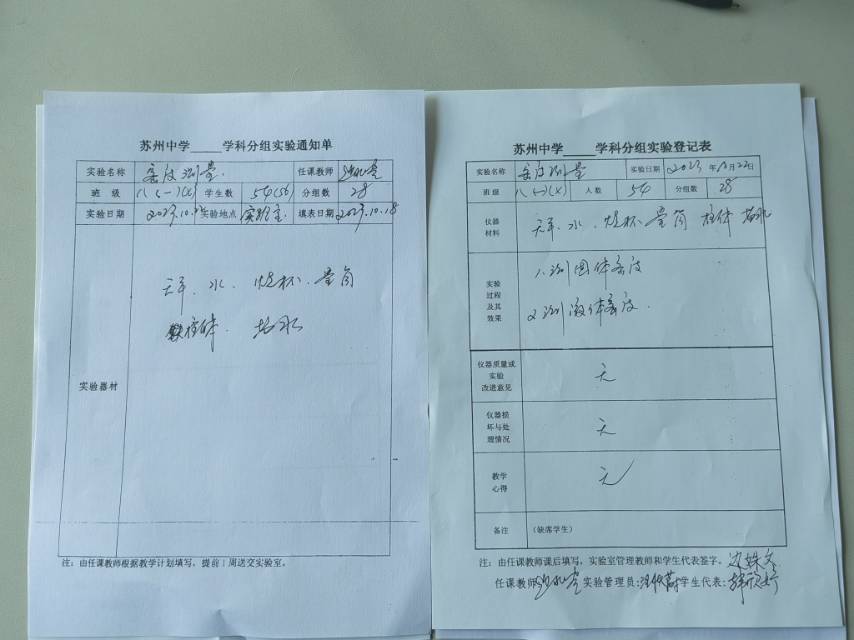 苏州中学_____学科分组实验通知单
实验名称 密度测量 任课教师
班 级 八(一)(×) 学生数 54(56) 分组数 28
实验日期 2023.10. 实验地点 实验室 填表日期 2023.10.18
天平、水、烧杯、量筒
柱体、盐水
实验器材
注：由任课教师根据教学计划填写，提前1周送交实验室。
苏州中学_____学科分组实验登记表
实验名称 密度测量 实验日期 2023年10月22日
班 级 八(一)(×) 人 数 54 分组数 28
仪器材料 天平、水、烧杯、量筒 柱体 盐水
实验过程及其效果 1、测固体密度
2、测液体密度.
仪器质量或实验改进意见 无
仪器损坏与处理情况 无
教学心得 无
备注 (缺席学生)
注：由任课教师课后填写，实验室管理教师和学生代表签字。
任课教师: 实验管理员: 学生代表: